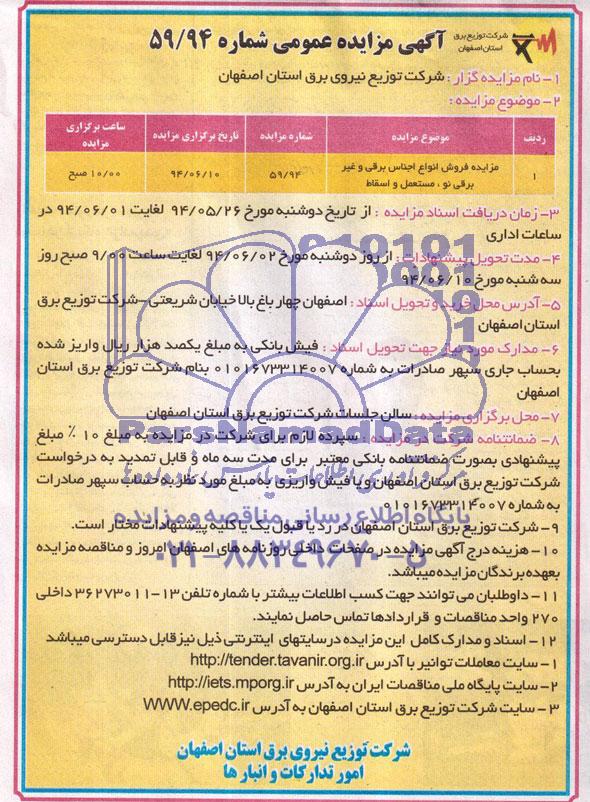 شرکت توزیع برق
استان اصفهان
آگهی مزایده عمومی شماره ۵۹/۹۴
۱- نام مزایده گزار: شرکت توزیع نیروی برق استان اصفهان
۲- موضوع مزایده:
ردیف موضوع مزایده شماره مزایده تاریخ برگزاری مزایده ساعت برگزاری مزایده
۱ مزایده فروش انواع اجناس برقی و غیر برقی نو ، مستعمل و اسقاط ۵۹/۹۴ ۹۴/۰۶/۱۰ ۱۰/۰۰ صبح
۳- زمان دریافت اسناد مزایده : از تاریخ دوشنبه مورخ ۹۴/۰۵/۲۶ لغایت ۹۴/۰۶/۰۱ در
ساعات اداری
۴- مدت تحویل پیشنهادات : از روز دوشنبه مورخ ۹۴/۰۶/۰۲ لغایت ساعت ۹/۰۰ صبح روز
سه شنبه مورخ ۹۴/۰۶/۱۰
۵- آدرس محل خرید و تحویل اسناد : اصفهان چهار باغ بالا خیابان شریعتی – شرکت توزیع برق
استان اصفهان
۶- مدارک مورد نیاز جهت تحویل اسناد : فیش بانکی به مبلغ یکصد هزار ریال واریز شده
بحساب جاری سپهر صادرات به شماره ۰۱۰۱۶۷۳۳۱۴۰۰۷ بنام شرکت توزیع برق استان
اصفهان
۷- محل برگزاری مزایده : سالن جلسات شرکت توزیع برق استان اصفهان
۸- ضمانتنامه شرکت در مزایده : سپرده لازم برای شرکت در مزایده به مبلغ ۱۰ ٪ مبلغ
پیشنهادی بصورت ضمانتنامه بانکی معتبر برای مدت سه ماه و قابل تمدید به درخواست
شرکت توزیع برق استان اصفهان و یا فیش واریزی به مبلغ مورد نظر به حساب سپهر صادرات
به شماره ۰۱۰۱۶۷۳۳۱۴۰۰۷
۹- شرکت توزیع برق استان اصفهان در رد یا قبول یک یا کلیه پیشنهادات مختار است.
۱۰- هزینه درج آگهی مزایده در صفحات داخلی روزنامه های اصفهان امروز و مناقصه مزایده
بعهده برندگان مزایده میباشد.
۱۱- داوطلبان می توانند جهت کسب اطلاعات بیشتر با شماره تلفن ۱۳-۳۶۲۷۳۰۱۱ داخلی
۲۷۰ واحد مناقصات و قراردادها تماس حاصل نمایند.
۱۲- اسناد و مدارک کامل این مزایده در سایتهای اینترنتی ذیل نیز قابل دسترسی میباشد
۱- سایت معاملات توانیر با آدرس http://tender.tavanir.org.ir
۲- سایت پایگاه ملی مناقصات ایران به آدرس http://iets.mporg.ir
۳- سایت شرکت توزیع برق استان اصفهان به آدرس WWW.epedc.ir
شرکت توزیع نیروی برق استان اصفهان
امور تدارکات و انبار ها
ParsNamadData
پایگاه اطلاع رسانی مناقصه و مزایده
۰۲۱-۸۸۳۴۹۶۷۰-۵